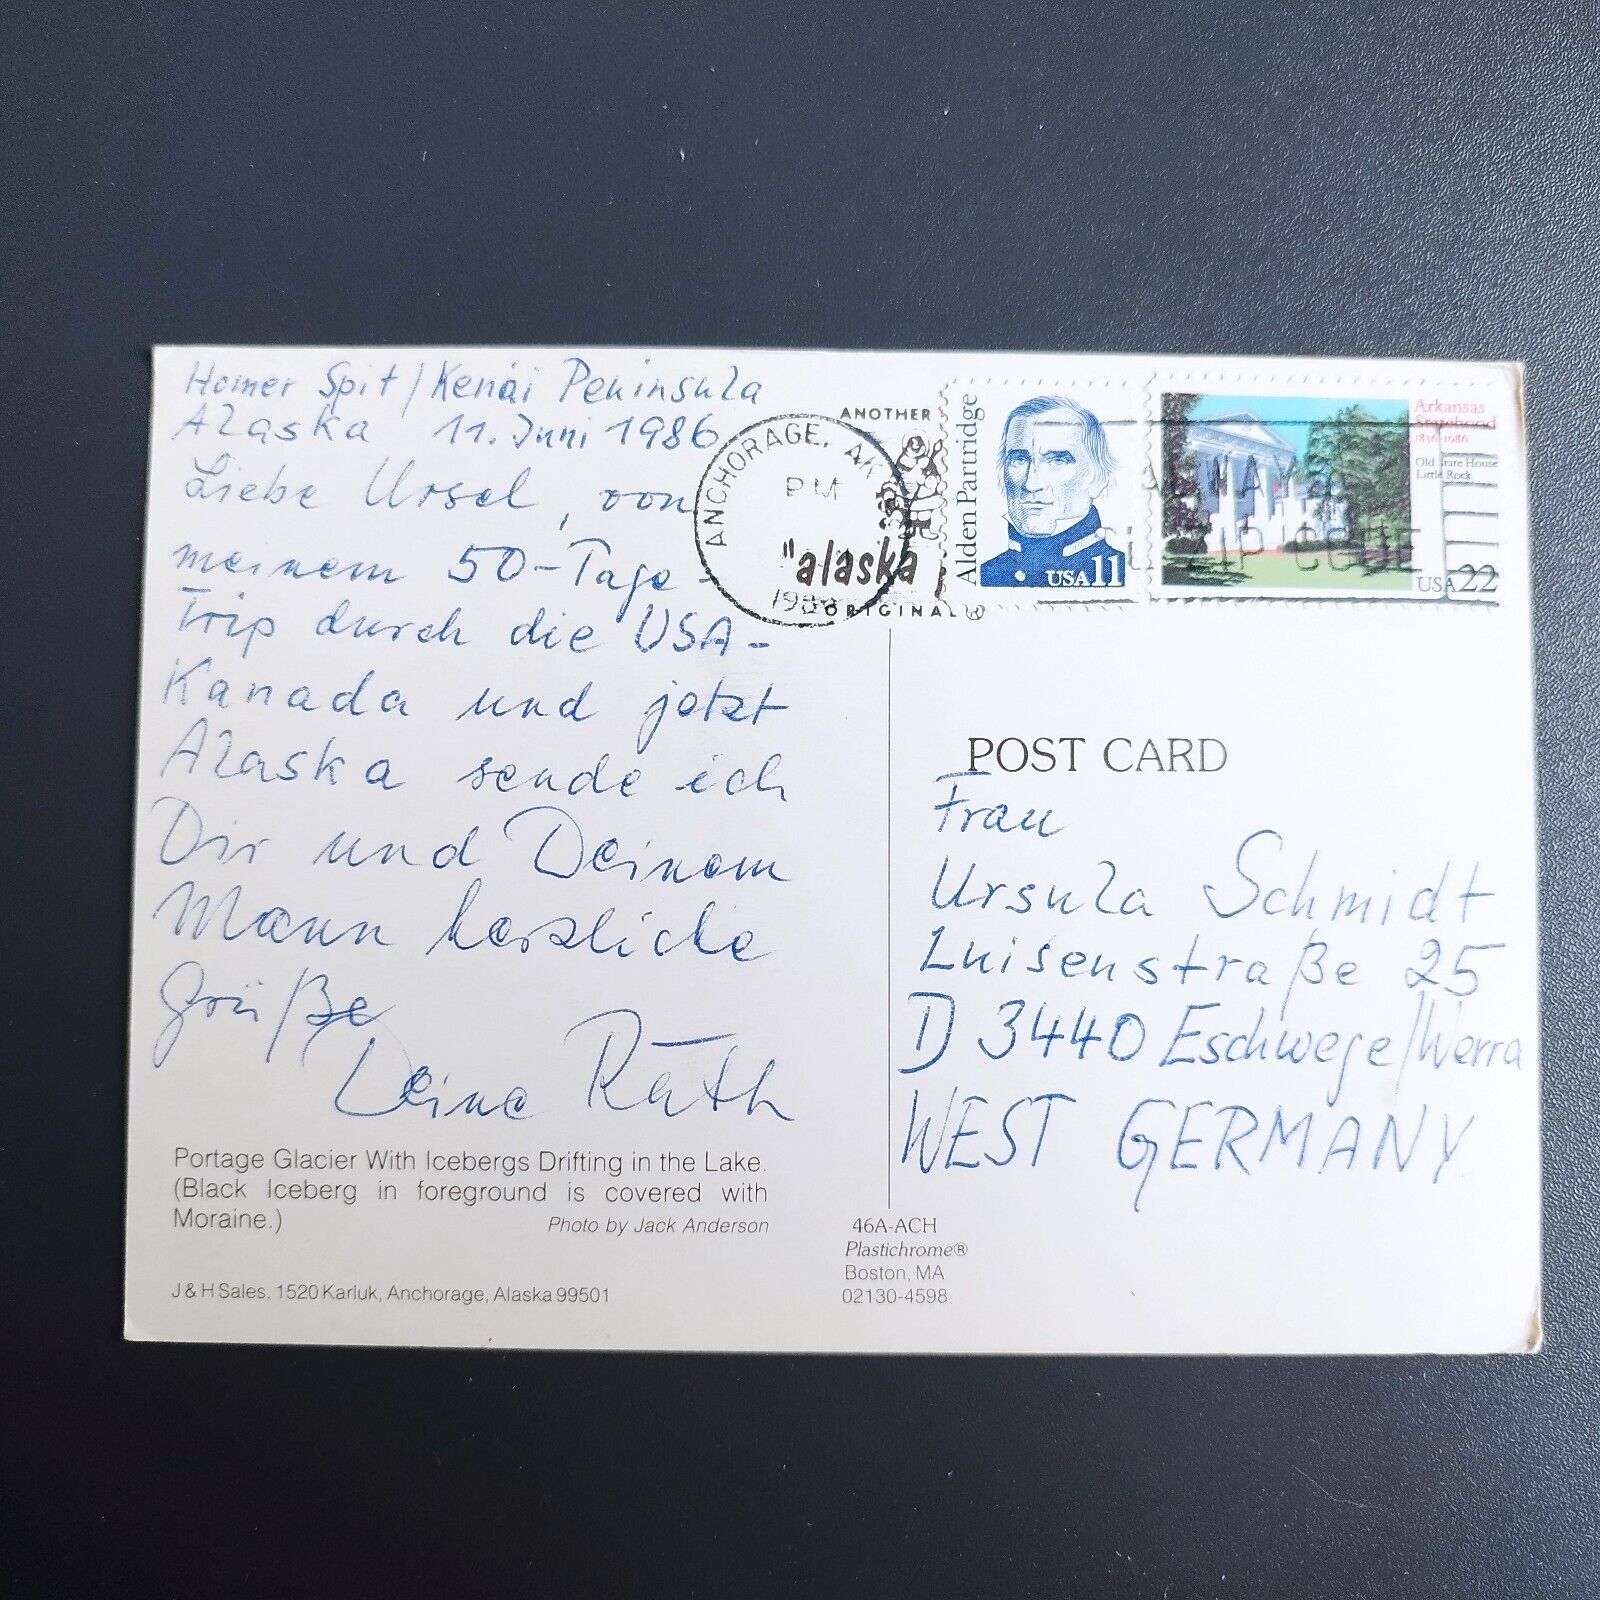 Homer Spit/Kenai Peninsula
Alaska 11. Juni 1986
Liebe Ursel, von
meinem 50-Tage-
Trip durch die USA-
Kanada und jetzt
Alaska sende ich
Dir und Deinem
Mann herzliche
Grüße
Deine Ruth
Portage Glacier With Icebergs Drifting in the Lake.
(Black Iceberg in foreground is covered with
Moraine.)
Photo by Jack Anderson
J & H Sales, 1520 Karluk, Anchorage, Alaska 99501
ANCHORAGE, AK
PM
ANOTHER
"alaska
ORIGINAL
Alden Partridge
USA 11
Arkansas
Statehood
1836-1986
Old State House
Little Rock
USA 22
ZIP CODE
POST CARD
Frau
Ursula Schmidt
Luisenstraße 25
D 3440 Eschwege/Werra
WEST GERMANY
46A-ACH
Plastichrome®
Boston, MA
02130-4598